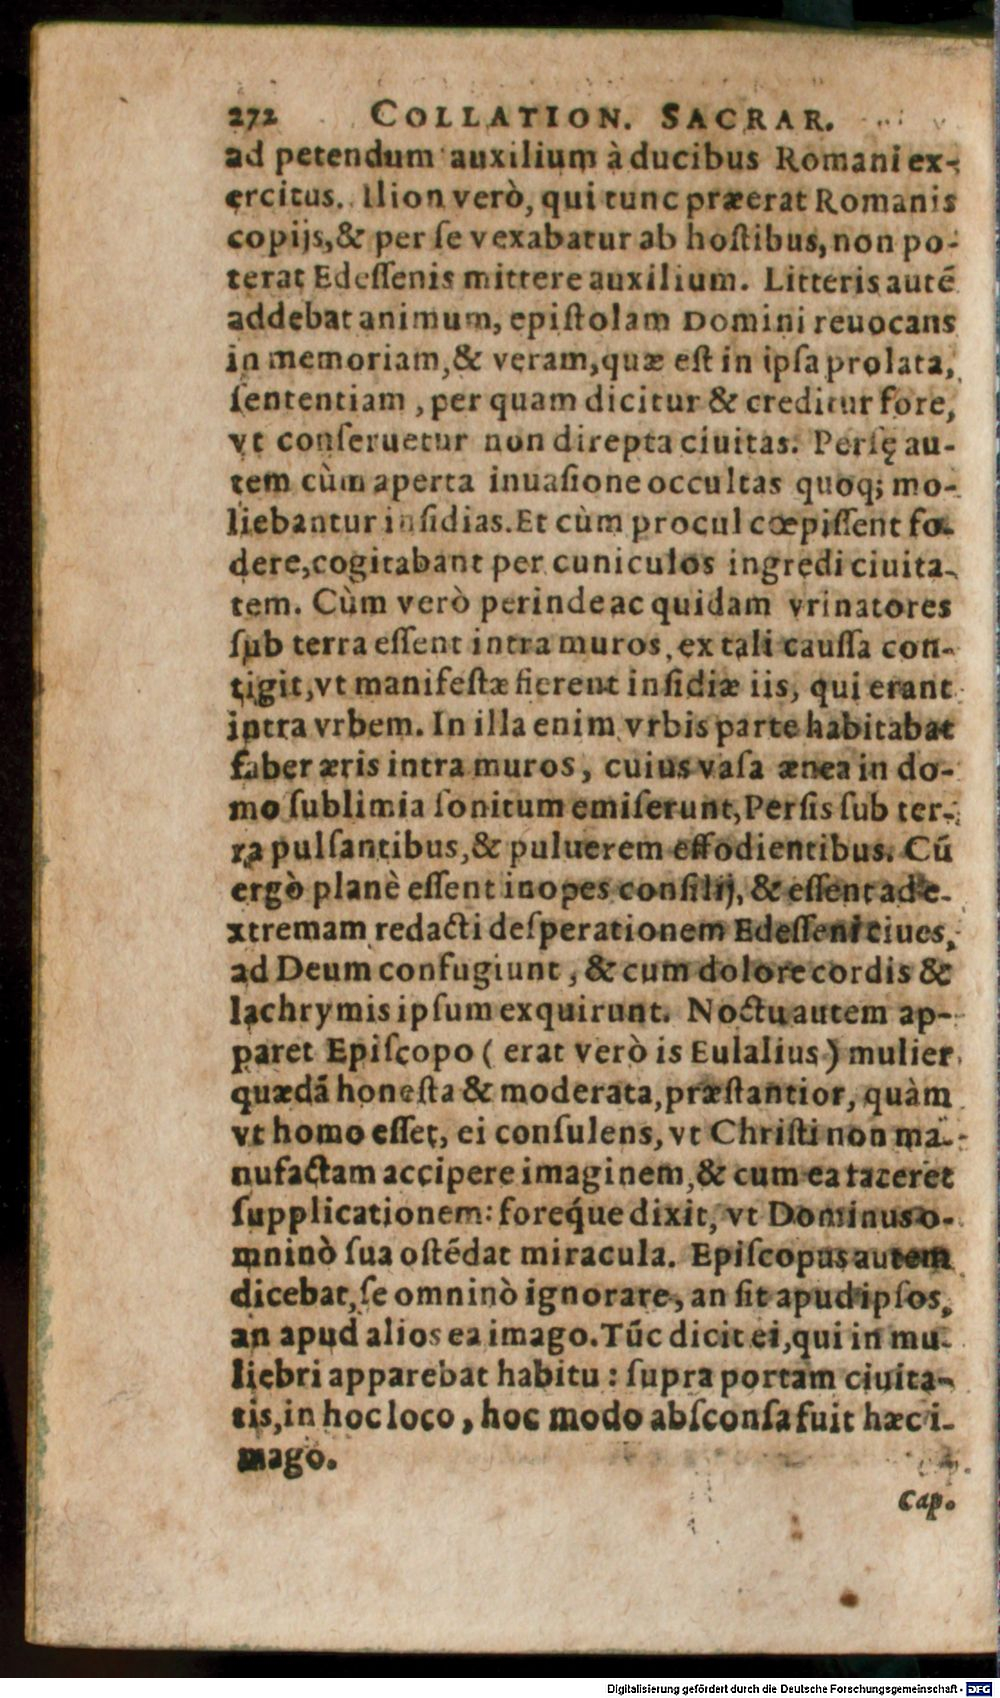 272 COLLATION. SACRAR.
ad petendum auxilium à ducibus Romani ex-
ercitus. Ilion verò, qui tunc præerat Romanis
copijs,& per ſe vexabatur ab hoſtibus, non po-
terat Edeſſenis mittere auxilium. Litteris autē
addebat animum, epiſtolam Domini reuocans
in memoriam,& veram,quæ eſt in ipſa prolata,
ſententiam , per quam dicitur & creditur fore,
vt conſeruetur non direpta ciuitas. Perſę au-
tem cùm aperta inuaſione occultas quoq; mo-
liebantur inſidias. Et cùm procul cœpiſſent fo-
dere,cogitabant per cuniculos ingredi ciuita-
tem. Cùm verò perinde ac quidam vrinatores
ſub terra eſſent intra muros, ex tali cauſſa con-
tigit,vt manifeſtæ fierent inſidiæ iis, qui erant
intra vrbem. In illa enim vrbis parte habitabat
faber æris intra muros, cuius vaſa ænea in do-
mo ſublimia ſonitum emiſerunt,Perſis ſub ter-
ra pulſantibus,& puluerem effodientibus. Cū
ergò planè eſſent inopes conſilij, & eſſent ad e-
xtremam redacti deſperationem Edeſſeni ciues,
ad Deum confugiunt, & cum dolore cordis &
lachrymis ipſum exquirunt. Noctu autem ap-
paret Epiſcopo ( erat verò is Eulalius ) mulier
quædā honeſta & moderata,præſtantior, quàm
vt homo eſſet, ei conſulens, vt Chriſti non ma-
nufactam accipere imaginem,& cum ea faceret
ſupplicationem: foreq́ue dixit, vt Dominus o-
mninò ſua oſtēdat miracula. Epiſcopus autem
dicebat,ſe omninò ignorare, an ſit apud ipſos,
an apud alios ea imago. Tūc dicit ei,qui in mu-
liebri apparebat habitu : ſupra portam ciuita-
tis,in hoc loco, hoc modo abſconſa fuit hæc i-
mago.
Cap.
Digitalisierung gefördert durch die Deutsche Forschungsgemeinschaft - DFG